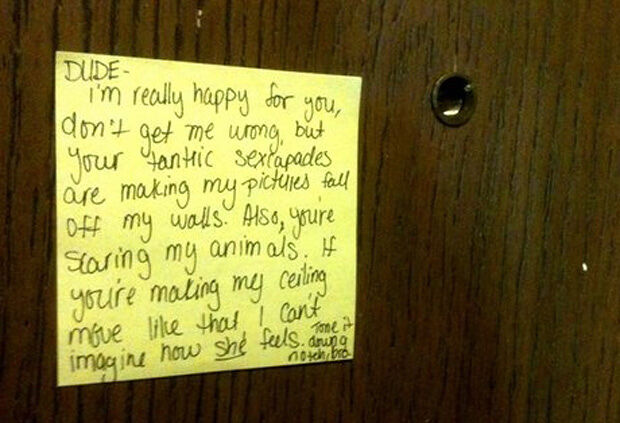 DUDE-
i'm really happy for you,
don't get me wrong, but
your tantric sexcapades
are making my pictures fall
off my walls. Also, you're
scaring my animals. If
you're making my ceiling
move like that, I can't
imagine how she feels. Tone it
down a
notch, bro